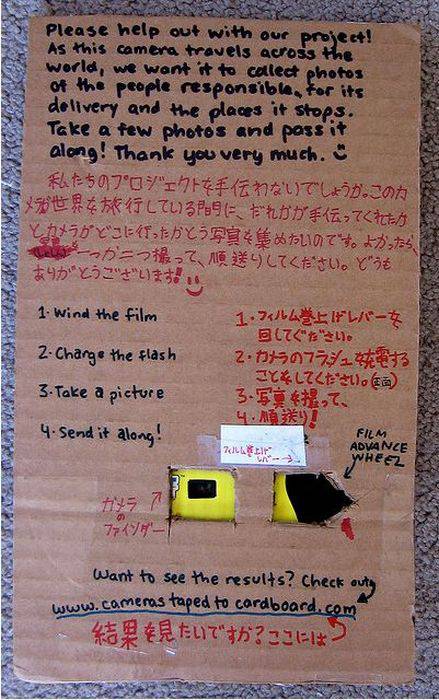 Please help out with our project!
As this camera travels across the
world, we want it to collect photos
of the people responsible for its
delivery and the places it stops.
Take a few photos and pass it
along! Thank you very much.
私たちのプロジェクトを手伝わないでしょうか。このカ
メラが世界を旅行している間に、だれかが手伝ってくれたか
とカメラがどこに行ったかとう写真を集めたいのです。よかったら、
一つか二つ撮って、順送りしてください。どうも
ありがとうございます!
1. Wind the film
2. Charge the flash
3. Take a picture
4. Send it along!
1. フィルム巻上げレバーを
回してください。
2. カメラのフラッシュを充電する
ことをしてください。
3. 写真を撮って、
4. 順送り!
フィルム巻上げ
レバー→
FILM
ADVANCE
WHEEL
カメラ
の
ファインダー
Want to see the results? Check out
www.camerastapedtocardboard.com
結果を見たいですか?ここには